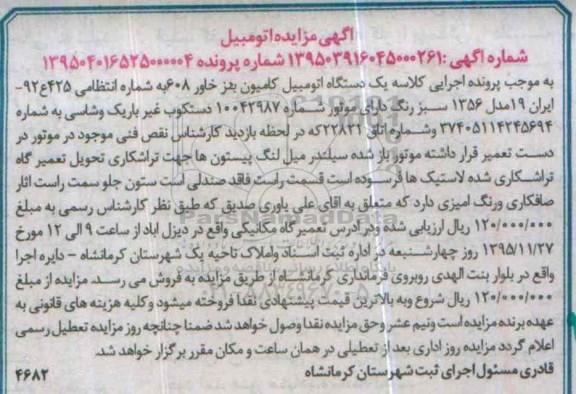 آگهی مزایده اتومبیل
شماره آگهی :139503916045000261 شماره پرونده 139504016525000004
به موجب پرونده اجرایی کلاسه یک دستگاه اتومبیل کامیون بنز خاور 608به شماره انتظامی 425ع92-
ایران 19مدل 1356 سبز رنگ دارای موتور شماره 10042987 دستکوب غیر باریک وشاسی به شماره
37405114245694 وشماره اتاق 22821که در لحظه بازدید کارشناس نقص فنی موجود در موتور در
دست تعمیر قرار داشته موتور باز شده سیلندر میل لنگ پیستون ها جهت تراشکاری تحویل تعمیر گاه
تراشکاری شده لاستیک ها فرسوده است قسمت راست فاقد صندلی است ستون جلو سمت راست اثار
صافکاری ورنگ امیزی دارد که متعلق به اقای علی یاوری صدیق که طبق نظر کارشناس رسمی به مبلغ
120/000/000 ریال ارزیابی شده ودر آدرس تعمیر گاه مکانیکی واقع در دیزل اباد از ساعت 9 الی 12 مورخ
1395/11/27 روز چهارشنبعه در اداره ثبت اسناد واملاک ناحیه یک شهرستان کرمانشاه - دایره اجرا
واقع در بلوار بنت الهدی روبروی فرمانداری کرمانشاه از طریق مزایده به فروش می رسد. مزایده از مبلغ
120/000/000 ریال شروع وبه بالاترین قیمت پیشنهادی نقدا فروخته میشود وکلیه هزینه های قانونی به
عهده برنده مزایده است ونیم عشر وحق مزایده نقدا وصول خواهد شد ضمنا چنانچه روز مزایده تعطیل رسمی
اعلام گردد مزایده روز اداری بعد از تعطیلی در همان ساعت و مکان مقرر برگزار خواهد شد.
قادری مسئول اجرای ثبت شهرستان کرمانشاه
4682
ParsNamadData